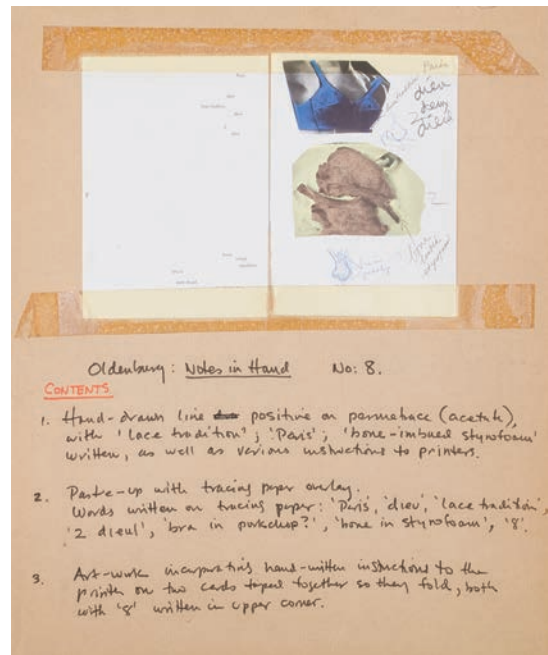 Paris
dieu
2
dieul
2
bone
Oldenburg: Notes in Hand No: 8.
CONTENTS
1. Hand-drawn line positive on permatrace (acetate),
with 'lace tradition'; 'Paris'; 'bone-imbued styrofoam'
written, as well as various instructions to printers.
2. Paste-up with tracing paper overlay.
Words written on tracing paper: 'Paris', 'dieu', 'lace tradition',
'2 dieul', 'bra in porkchop?', 'bone in styrofoam', '8'.
3. Art-work incorporating hand-written instructions to the
printer on two cards taped together so they fold, both
with '8' written in upper corner.